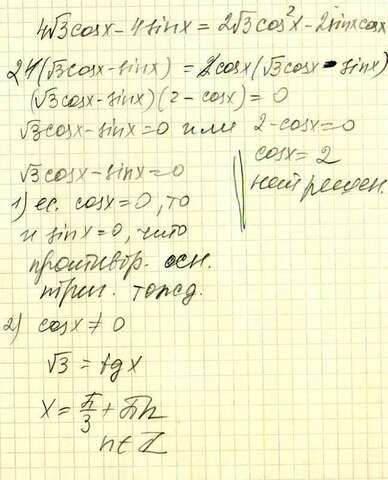 4√3cosx - 4sinx = 2√3cos²x - 2sinxcosx
24(√3cosx - sinx) = 2cosx(√3cosx - sinx)
(√3cosx - sinx)(2 - cosx) = 0
√3cosx - sinx = 0 или 2 - cosx = 0
cosx = 2
нет решен.
√3cosx - sinx = 0
1) ес. cosx = 0, то
и sinx = 0, что
противор. осн.
триг. тожд.
2) cosx ≠ 0
√3 = tgx
x = π/3 + πn
n ∈ Z